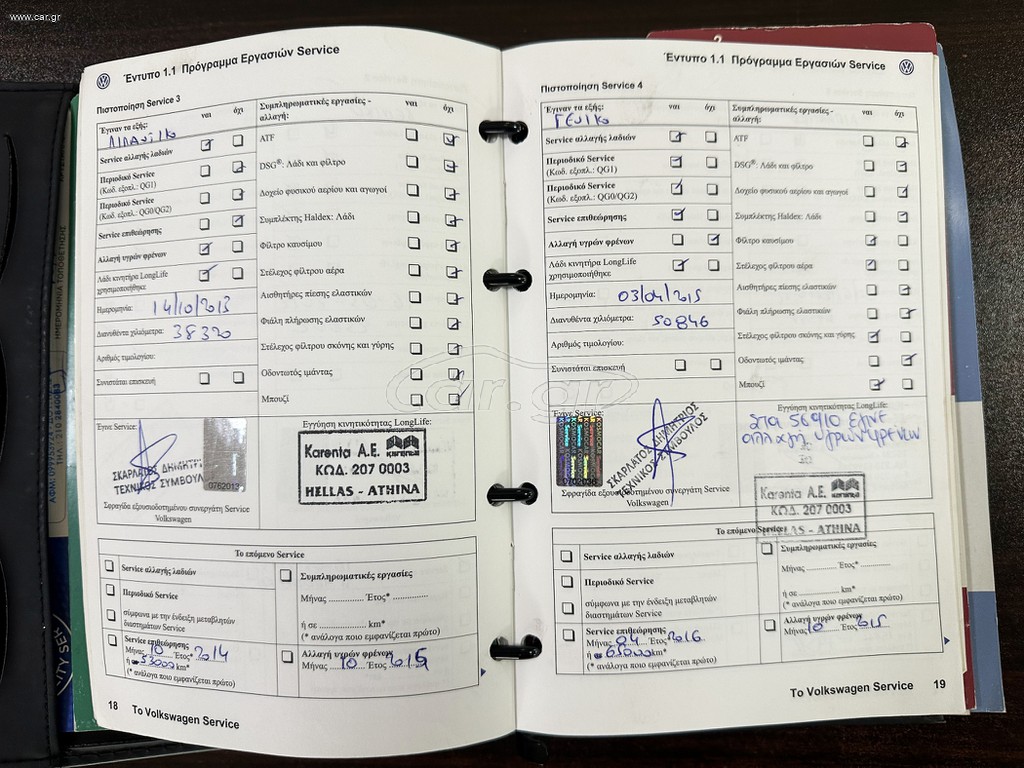 www.car.gr
Έντυπο 1.1 Πρόγραμμα Εργασιών Service
Πιστοποίηση Service 3
Έγιναν τα εξής:
ναι
όχι
Συμπληρωματικές εργασίες -
αλλαγή:
ναι
όχι
Service αλλαγής λαδιών
Περιοδικό Service
(Κωδ. εξοπλ.: QG1)
Περιοδικό Service
(Κωδ. εξοπλ.: QG0/QG2)
Service επιθεώρησης
Αλλαγή υγρών φρένων
Λάδι κινητήρα LongLife
χρησιμοποιήθηκε
Ημερομηνία: 14/10/2013
Διανυθέντα χιλιόμετρα: 38320
Αριθμός τιμολογίου:
Συνιστάται επισκευή
ATF
DSG®: Λάδι και φίλτρο
Δοχείο φυσικού αερίου και αγωγοί
Συμπλέκτης Haldex: Λάδι
Φίλτρο καυσίμου
Στέλεχος φίλτρου αέρα
Αισθητήρες πίεσης ελαστικών
Φιάλη πλήρωσης ελαστικών
Στέλεχος φίλτρου σκόνης και γύρης
Οδοντωτός ιμάντας
Μπουζί
Έγινε Service:
ΣΚΑΡΛΑΤΟΣ ΔΗΜΗΤΡΙ
ΤΕΧΝΙΚΟΣ ΣΥΜΒΟΥΛ
0762013
Σφραγίδα εξουσιοδοτημένου συνεργάτη Service
Volkswagen
Εγγύηση κινητικότητας LongLife:
Karenta A.E. karenta
ΚΩΔ. 207 0003
HELLAS - ATHINA
Το επόμενο Service
Service αλλαγής λαδιών
Περιοδικό Service
σύμφωνα με την ένδειξη μεταβλητών
διαστημάτων Service
Service επιθεώρησης
Μήνας 10 Έτος* 2014
ή σε 53000 km*
(* ανάλογα ποιο εμφανίζεται πρώτο)
Συμπληρωματικές εργασίες
Μήνας .............. Έτος* ..............
ή σε .................... km*
(* ανάλογα ποιο εμφανίζεται πρώτο)
Αλλαγή υγρών φρένων
Μήνας 10 Έτος 2015
18 Το Volkswagen Service
Έντυπο 1.1 Πρόγραμμα Εργασιών Service
Πιστοποίηση Service 4
Έγιναν τα εξής:
ΓΕΝΙΚΟ
ναι
όχι
Συμπληρωματικές εργασίες -
αλλαγή:
ναι
όχι
Service αλλαγής λαδιών
Περιοδικό Service
(Κωδ. εξοπλ.: QG1)
Περιοδικό Service
(Κωδ. εξοπλ.: QG0/QG2)
Service επιθεώρησης
Αλλαγή υγρών φρένων
Λάδι κινητήρα LongLife
χρησιμοποιήθηκε
Ημερομηνία: 03/04/2015
Διανυθέντα χιλιόμετρα: 50846
Αριθμός τιμολογίου:
Συνιστάται επισκευή
ATF
DSG®: Λάδι και φίλτρο
Δοχείο φυσικού αερίου και αγωγοί
Συμπλέκτης Haldex: Λάδι
Φίλτρο καυσίμου
Στέλεχος φίλτρου αέρα
Αισθητήρες πίεσης ελαστικών
Φιάλη πλήρωσης ελαστικών
Στέλεχος φίλτρου σκόνης και γύρης
Οδοντωτός ιμάντας
Μπουζί
Έγινε Service:
ΣΚΑΡΛΑΤΟΣ ΔΗΜΗΤΡΙΟΣ
ΤΕΧΝΙΚΟΣ ΣΥΜΒΟΥΛΟΣ
Σφραγίδα εξουσιοδοτημένου συνεργάτη Service
Volkswagen
Εγγύηση κινητικότητας LongLife:
Στα 56910 έγινε
αλλαγή υγρών φρένων
Karenta A.E. karenta
ΚΩΔ. 207 0003
HELLAS - ATHINA
Το επόμενο Service
Service αλλαγής λαδιών
Περιοδικό Service
σύμφωνα με την ένδειξη μεταβλητών
διαστημάτων Service
Service επιθεώρησης
Μήνας 04 Έτος* 2016
ή σε 65000 km*
(* ανάλογα ποιο εμφανίζεται πρώτο)
Συμπληρωματικές εργασίες
Μήνας .............. Έτος* ..............
ή σε .................... km*
(* ανάλογα ποιο εμφανίζεται πρώτο)
Αλλαγή υγρών φρένων
Μήνας 10 Έτος 2015
Το Volkswagen Service 19
car.gr